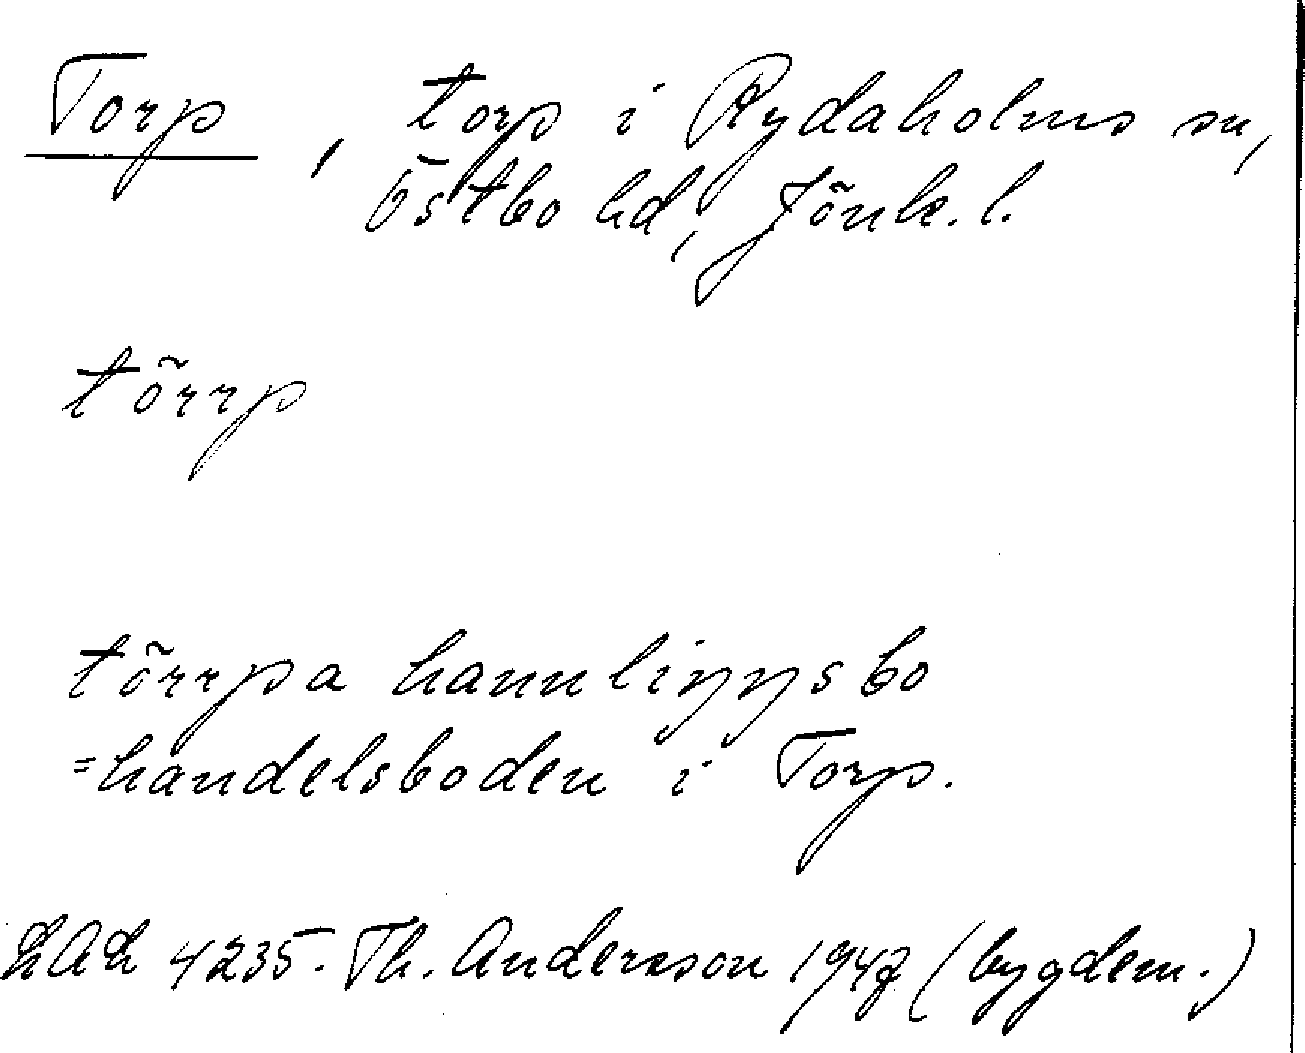 Torp, torp i Rydaholms sn,
Östbo hd, Jönk. l.
tõrrp
tõrrpa hannliŋŋsbo
=handelsboden i Torp.
4235. Th. Andersson 1947 (bygdem.)